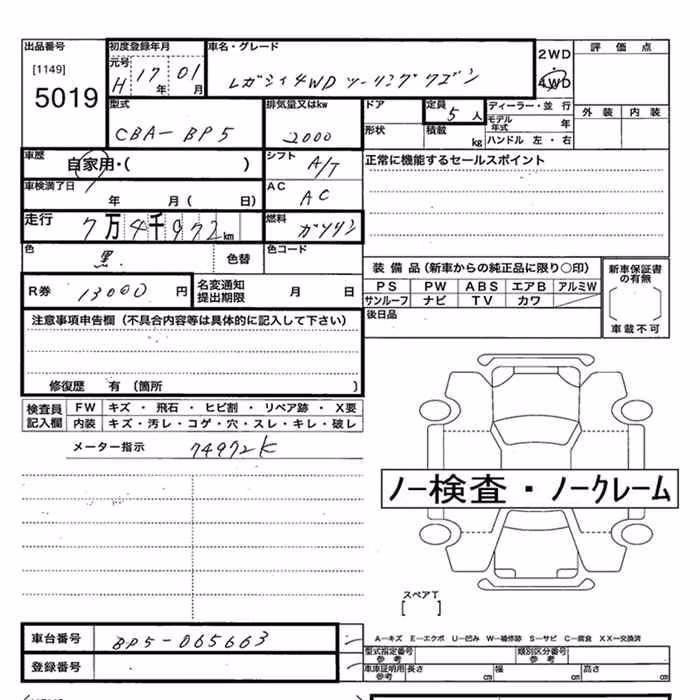 出品番号
[1149]
5019
初度登録年月
元号
H 17年 01月
車名・グレード
レガシィ4WD ツーリングワゴン
2WD
4WD
評価点
外装 内装
型式
CBA-BP5
排気量又はkw
2000
ドア
形状
定員
5人
積載
kg
ディーラー・並行
モデル年式 年
ハンドル 左・右
車歴
自家用・( )
シフト
A/T
正常に機能するセールスポイント
車検満了日
年 月( 日)
AC
AC
走行
7万4千972km
燃料
ガソリン
色
黒.
色替
色コード
装備品(新車からの純正品に限り○印)
PS PW ABS エアB アルミW
サンルーフ ナビ TV カワ
新車保証書の有無
車載不可
R券
13000円
名変通知
提出期限
月 日
後日品
注意事項申告欄(不具合内容等は具体的に記入して下さい)
修復歴 有〔箇所 〕
検査員
記入欄
FW キズ・飛石・ヒビ割・リペア跡・X要
内装 キズ・汚レ・コゲ・穴・スレ・キレ・破レ
メーター指示
74972K
ノー検査・ノークレーム
スペアT
[ ]
車台番号
BP5-065663
登録番号
A-キズ E-エクボ U-凹み W-補修跡 S-サビ C-腐食 XX-交換済
型式指定番号
参考
類別区分番号
参考
車庫証明用
参考
長さ cm 幅 cm 高さ cm